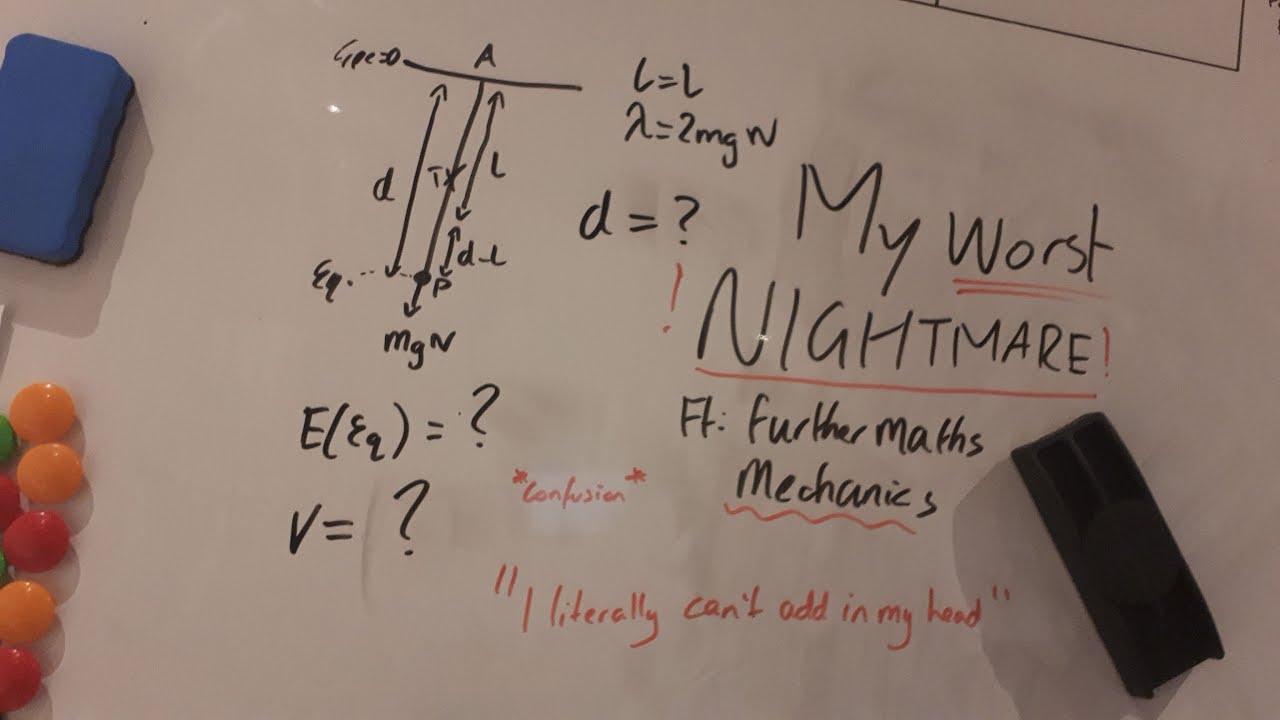 Gpe=0
A
l=L
λ=2mgN
d
T
L
d-L
Eq.
P
mgN
d=?
My Worst
! NIGHTMARE!
Ft: Further Maths
Mechanics
E(Eq)=?
V=?
*confusion*
"I literally can't add in my head"